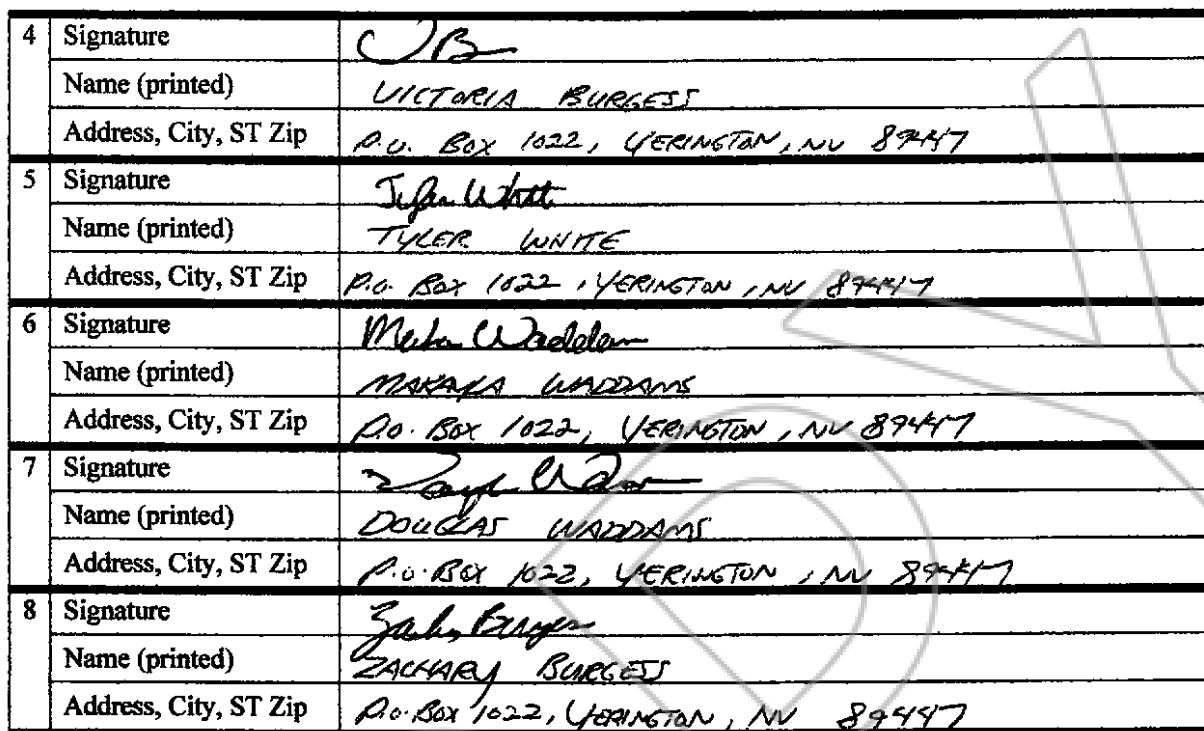 4 Signature
Name (printed) VICTORIA BURGESS
Address, City, ST Zip P.O. Box 1022, YERINGTON, NV 89447
5 Signature Tyler White
Name (printed) TYLER WHITE
Address, City, ST Zip P.O. Box 1022, YERINGTON, NV 89447
6 Signature Waddams
Name (printed) MAKAYA WADDAMS
Address, City, ST Zip P.O. Box 1022, YERINGTON, NV 89447
7 Signature
Name (printed) DOUGLAS WADDAMS
Address, City, ST Zip P.O. Box 1022, YERINGTON, NV 89447
8 Signature Burgess
Name (printed) ZACHARY BURGESS
Address, City, ST Zip P.O. Box 1022, YERINGTON, NV 89447